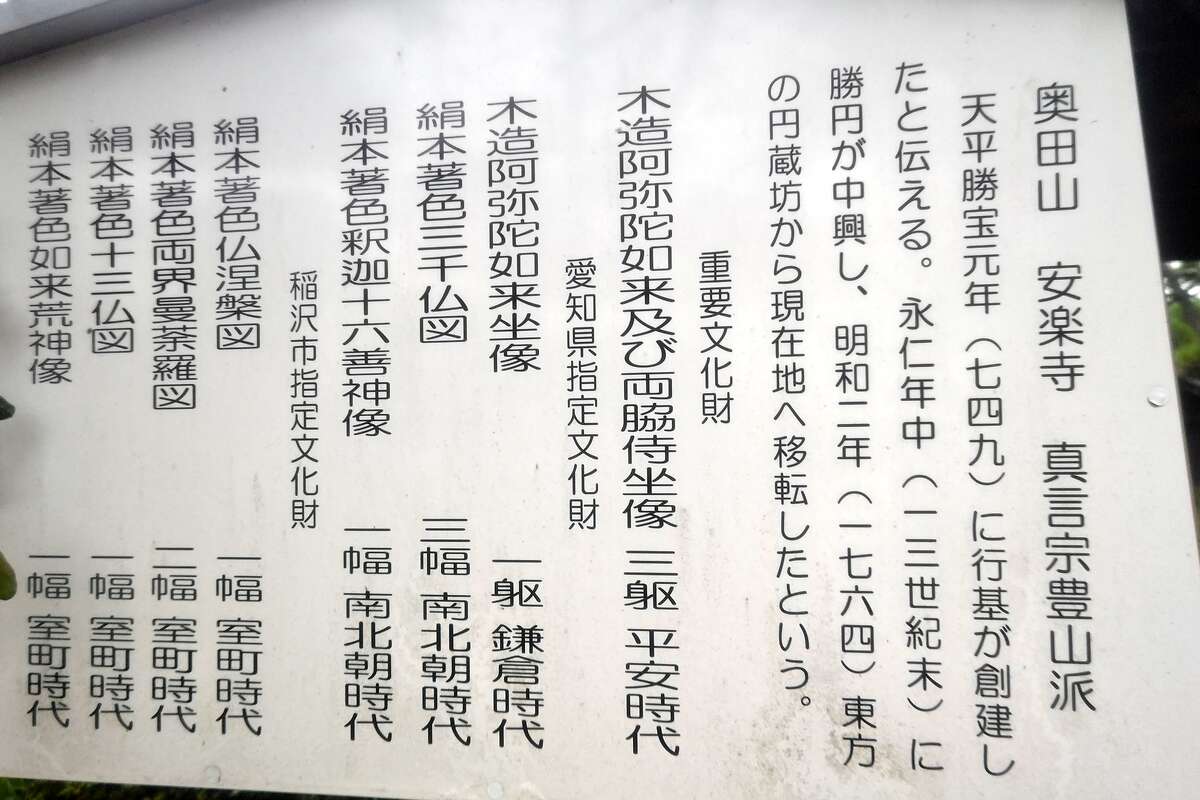 奥田山 安楽寺 真言宗豊山派
天平勝宝元年(七四九)に行基が創建し
たと伝える。永仁年中(一三世紀末)に
勝円が中興し、明和二年(一七六四)東方
の円蔵坊から現在地へ移転したという。
重要文化財
木造阿弥陀如来及び両脇侍坐像 三躯 平安時代
愛知県指定文化財
木造阿弥陀如来坐像 一躯 鎌倉時代
絹本著色三千仏図 三幅 南北朝時代
絹本著色釈迦十六善神像 一幅 南北朝時代
稲沢市指定文化財
絹本著色仏涅槃図 一幅 室町時代
絹本著色両界曼荼羅図 二幅 室町時代
絹本著色十三仏図 一幅 室町時代
絹本著色如来荒神像 一幅 室町時代